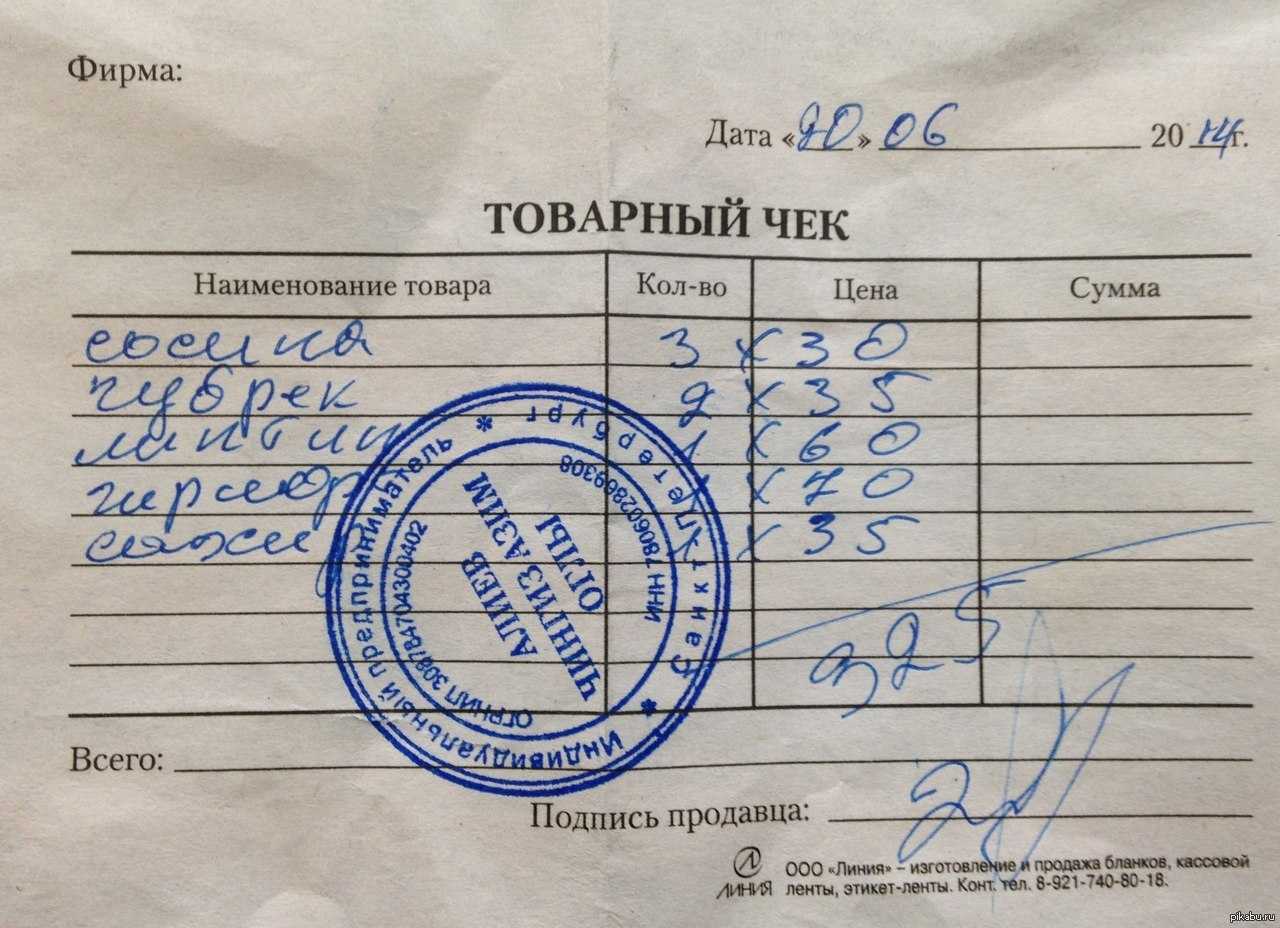 Фирма:
Дата «20» 06 2014г.
ТОВАРНЫЙ ЧЕК
Наименование товара Кол-во Цена Сумма
сосика 3 х 30
чубрек 2 х 35
1 х 60
х 70
х 35
325
Индивидуальный предприниматель * Санкт-Петербург *
ОГРНИП 308784704300402
ИНН 780602869308
АЛИЕВ
ЧИНГИЗ АЗИМ
ОГЛЫ
Всего:
Подпись продавца:
ЛИНИЯ
ООО «Линия» – изготовление и продажа бланков, кассовой
ленты, этикет-ленты. Конт. тел. 8-921-740-80-18.
pikabu.ru